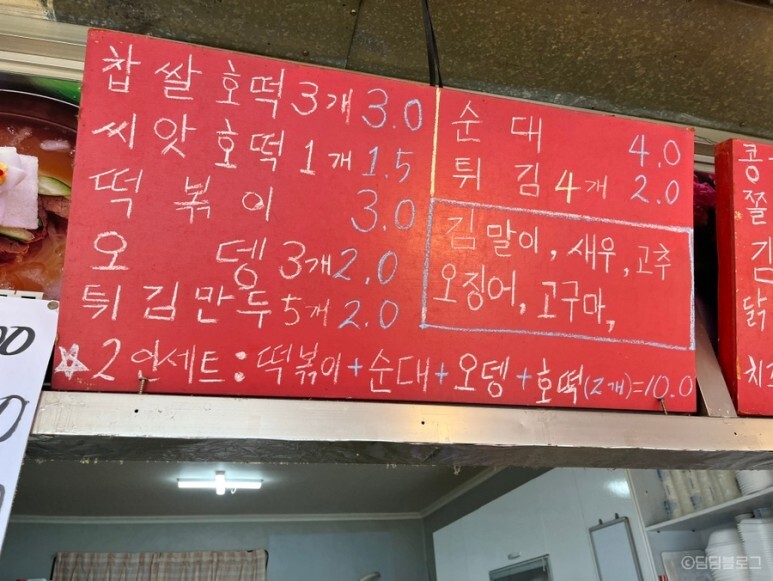 찹쌀호떡 3개 3.0
씨앗호떡 1개 1.5
떡볶이 3.0
오뎅 3개 2.0
튀김만두 5개 2.0
순대 4.0
튀김 4개 2.0
김말이, 새우, 고추
오징어, 고구마,
☆2인세트: 떡볶이+순대+오뎅+호떡(2개)=10.0
쫄
김
닭
치즈
©담담블로그